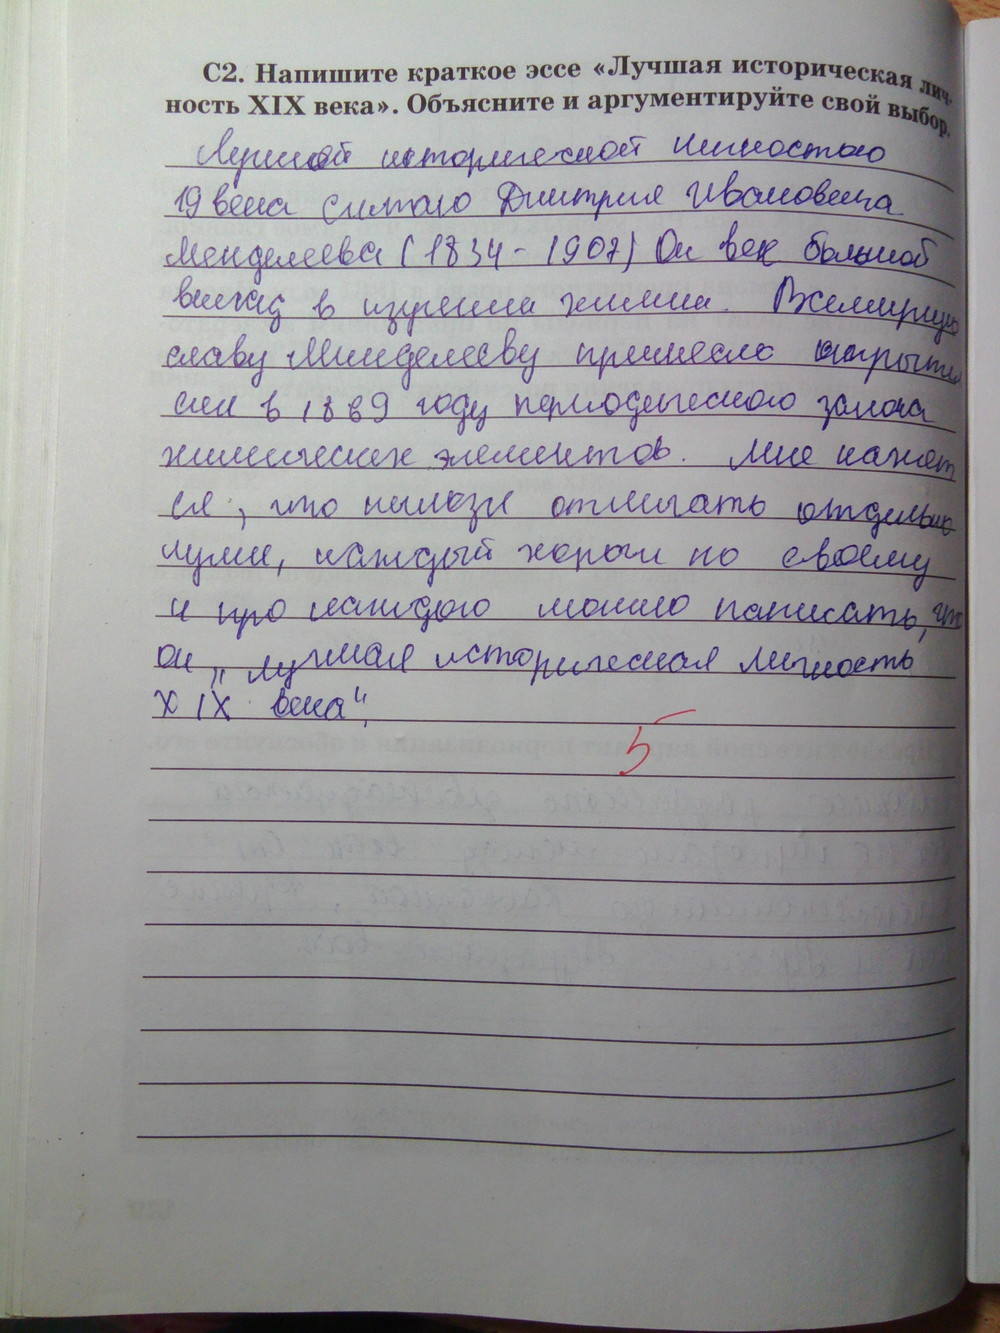 С2. Напишите краткое эссе «Лучшая историческая лич-
ность XIX века». Объясните и аргументируйте свой выбор.
Лучшей исторической личностью
19 века считаю Дмитрия Ивановича
Менделеева (1834 - 1907) Он внёс большой
вклад в изучении химии. Всемирную
славу Менделееву принесло открытие
им в 1869 году периодического закона
химических элементов. Мне кажет
ся, что нельзя отмечать отдельно
лучше, каждый хорош по своему
и про каждого можно написать, что
он „лучшая историческая личность
XIX века“.
5